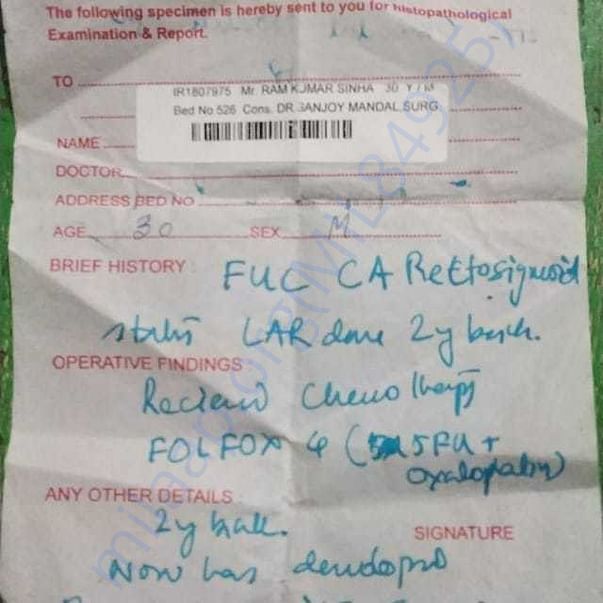 The following specimen is hereby sent to you for histopathological
Examination & Report.
TO
IR1807975 Mr. RAM KUMAR SINHA 30 Y / M
Bed No 526 Cons. DR.SANJOY MANDAL.SURG
NAME
DOCTOR
ADDRESS BED NO
AGE 30 SEX M
BRIEF HISTORY : FUC CA Rectosigmoid
status LAR done 2y back.
OPERATIVE FINDINGS :
Received Chemotherapy
FOLFOX 4 (5FU +
oxaloplatin)
ANY OTHER DETAILS :
2y back. SIGNATURE
Now has developed
milaap.org(MIL84925)